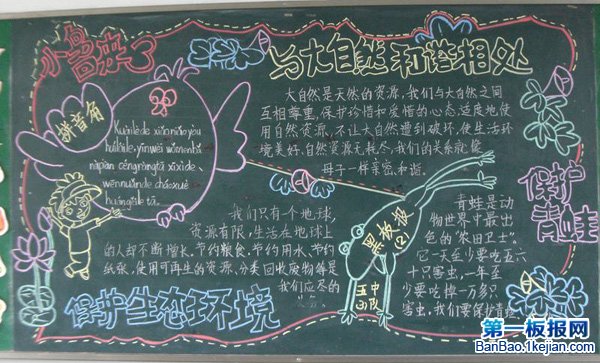 小鸟来了
与大自然和谐相处
拼音角
Kuàilède xiǎoniǎo yòu
huíláile, yīnwèi wǒmen bǎ
nàpàn céngróngtà xǐxìde、
wēnnuǎnde cháoxué
huángǎile tā.
大自然是天然的资源,我们与大自然之间
互相尊重,保护珍惜和爱惜的心态,适度地使
用自然资源,不让大自然遭到破坏,使生活环
境美好,自然资源无耗尽,我们的关系就能
母子一样亲密、和谐。
我们只有个地球,
资源有限,生活在地球上
的人却不断增长。节约粮食,节约用水、节约
纸张,使用可再生的资源,分类回收废物等是
我们应尽的
保护生态环境
黑板报
(2)
五中
(3)队
保护
青蛙
青蛙是动
物世界中最出
色的“农田卫士”。
它一天至少要吃五六
十只害虫,一年至
少要吃掉一万多只
害虫,我们要保护青蛙
第一板报网
BanBao.1kejian.com